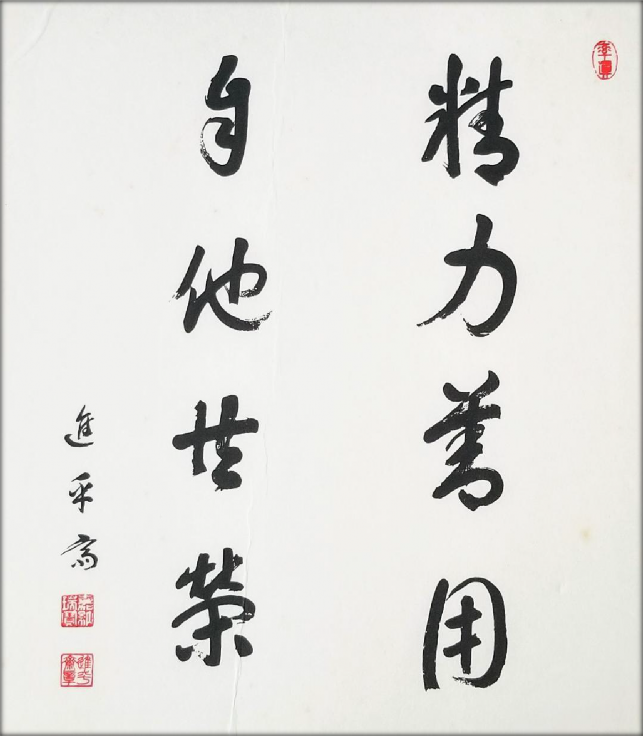 精力善用
自他共榮
進乎齋